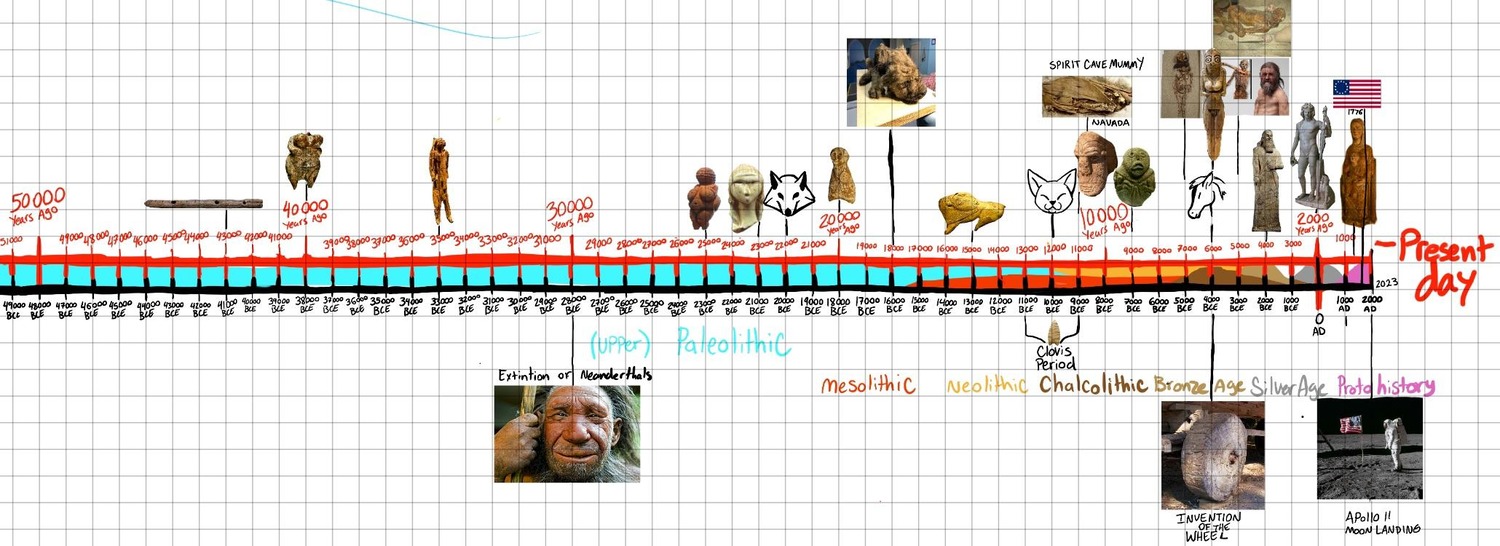 SPIRIT CAVE MUMMY
NAVADA
1776
50000
Years Ago
40000
Years Ago
30000
Years Ago
20000
Years Ago
10000
Years Ago
2000
Years Ago
Present
day
51000 49000 48000 47000 46000 45000 44000 43000 42000 41000 39000 38000 37000 36000 35000 34000 33000 32000 31000 29000 28000 27000 26000 25000 24000 23000 22000 21000 19000 18000 17000 16000 15000 14000 13000 12000 11000 9000 8000 7000 6000 5000 4000 3000 1000
2023
49000 BCE
48000 BCE
47000 BCE
46000 BCE
45000 BCE
44000 BCE
43000 BCE
42000 BCE
41000 BCE
40000 BCE
39000 BCE
38000 BCE
37000 BCE
36000 BCE
35000 BCE
34000 BCE
33000 BCE
32000 BCE
31000 BCE
30000 BCE
29000 BCE
28000 BCE
27000 BCE
26000 BCE
25000 BCE
24000 BCE
23000 BCE
22000 BCE
21000 BCE
20000 BCE
19000 BCE
18000 BCE
17000 BCE
16000 BCE
15000 BCE
14000 BCE
13000 BCE
12000 BCE
11000 BCE
10000 BCE
9000 BCE
8000 BCE
7000 BCE
6000 BCE
5000 BCE
4000 BCE
3000 BCE
2000 BCE
1000 BCE
0 AD
1000 AD
2000 AD
(UPPer) Paleolithic
Clovis
Period
Extintion or Neanderthals
Mesolithic Neolithic Chalcolithic Bronze Age Silver Age Proto history
INVENTION
OF THE
WHEEL
APOllO 11
MOON LANDING